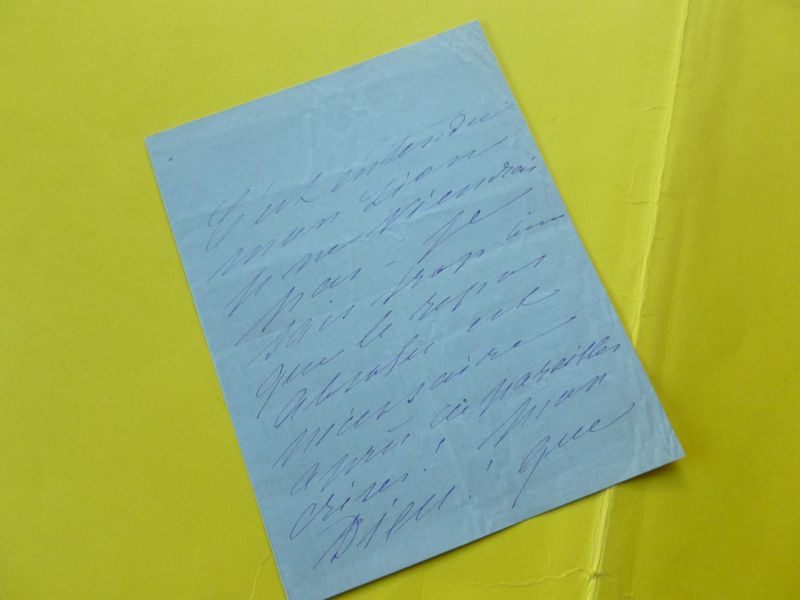 C'est entendu
mon Léon
je ne viendrai
pas - Je
sais trop
que le repos
absolu est
nécessaire
après de pareilles
crises! Mon
Dieu! que